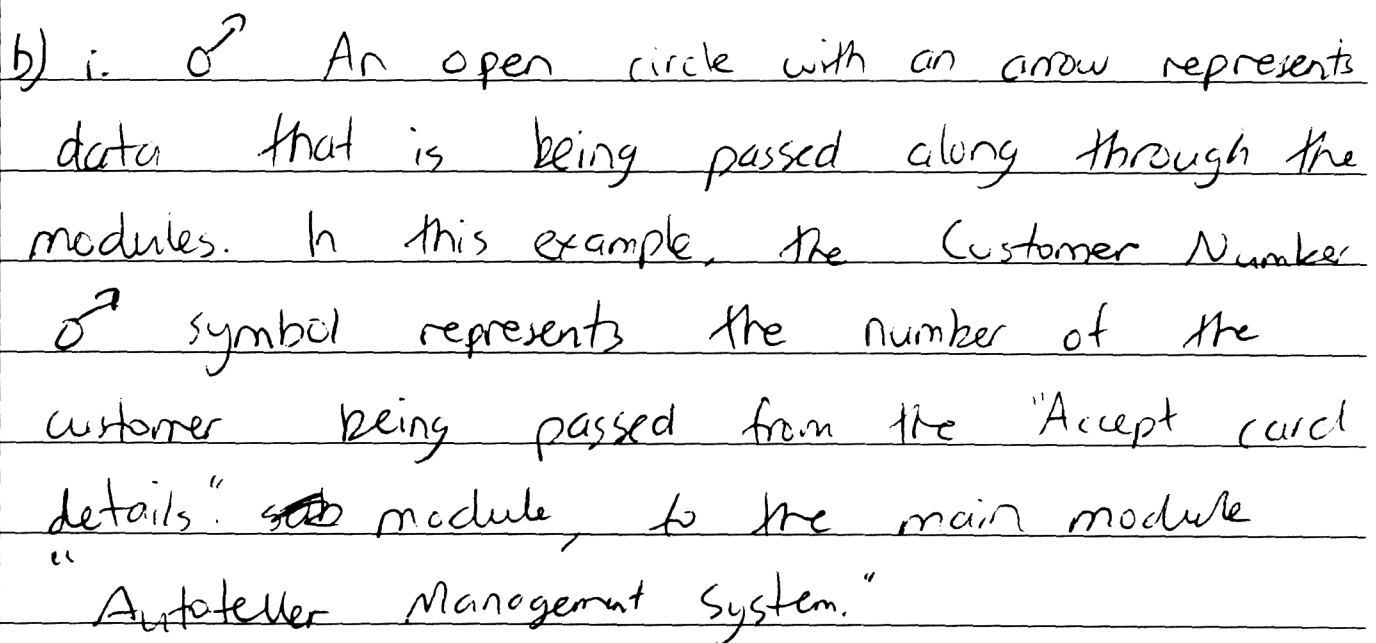 b) i. ♂ An open circle with an arrow represents
data that is being passed along through the
modules. In this example, the Customer Number
♂ symbol represents the number of the
customer being passed from the "Accept card
details". module, to the main module
"Autoteller Management System."